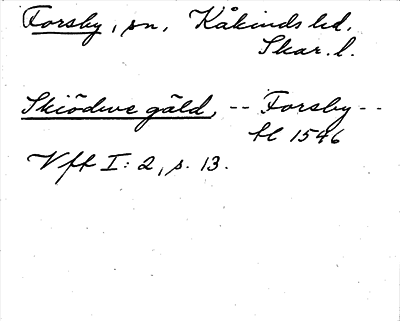 Forsby, sn, Kåkinds hd,
Skar. l.
Skiödwe gäld, -- Forsby --
hl 1546
Vff I: 2, s. 13.